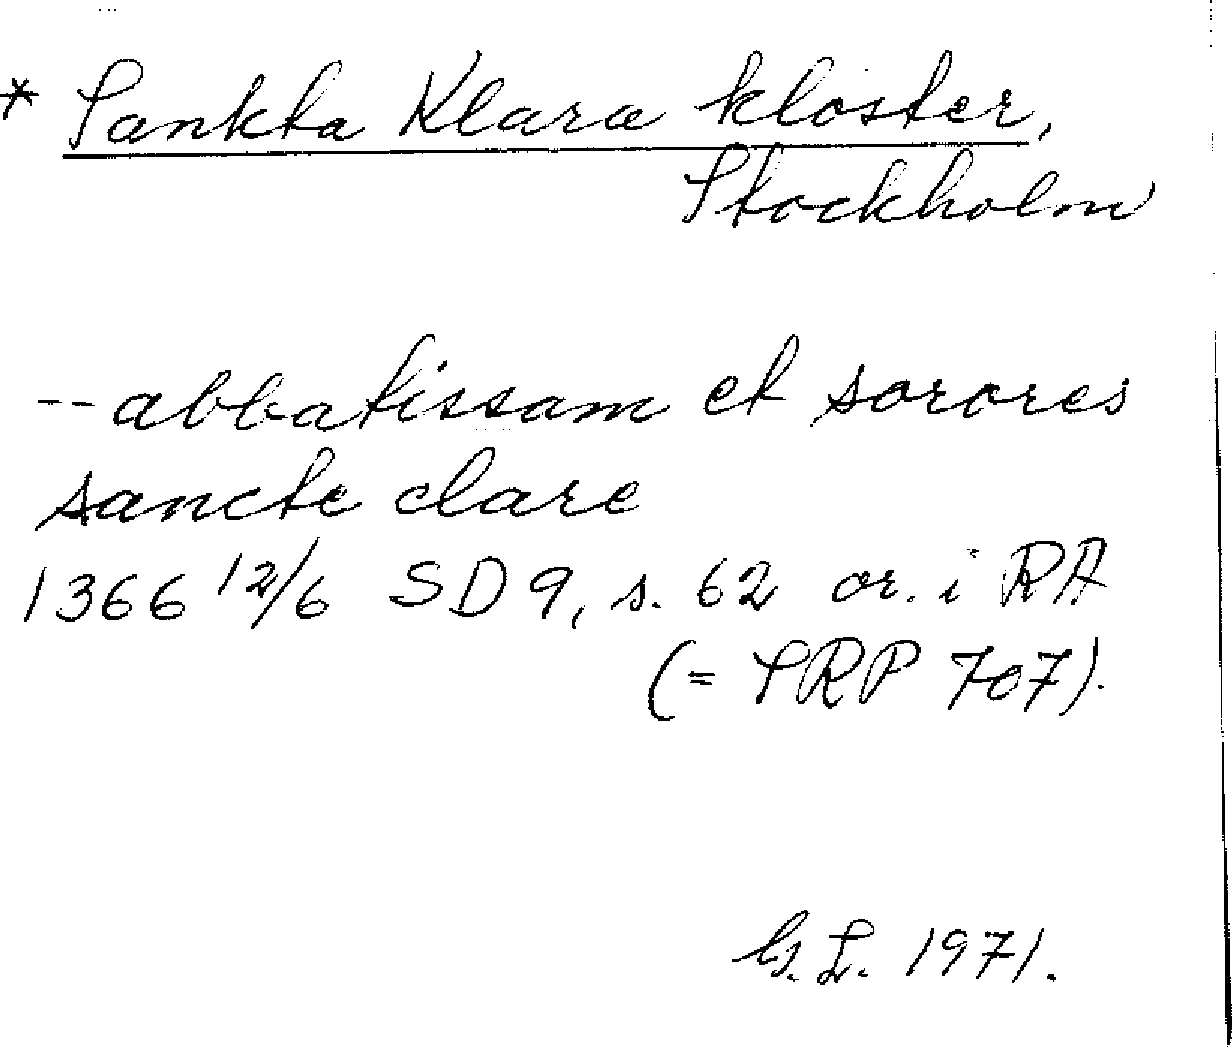 * Sankta Klara kloster,
Stockholm
-- abbatissam et sorores
sancte clare
1366 12/6 SD 9, s. 62 or. i RA
(= SRP 707).
G. L. 1971.